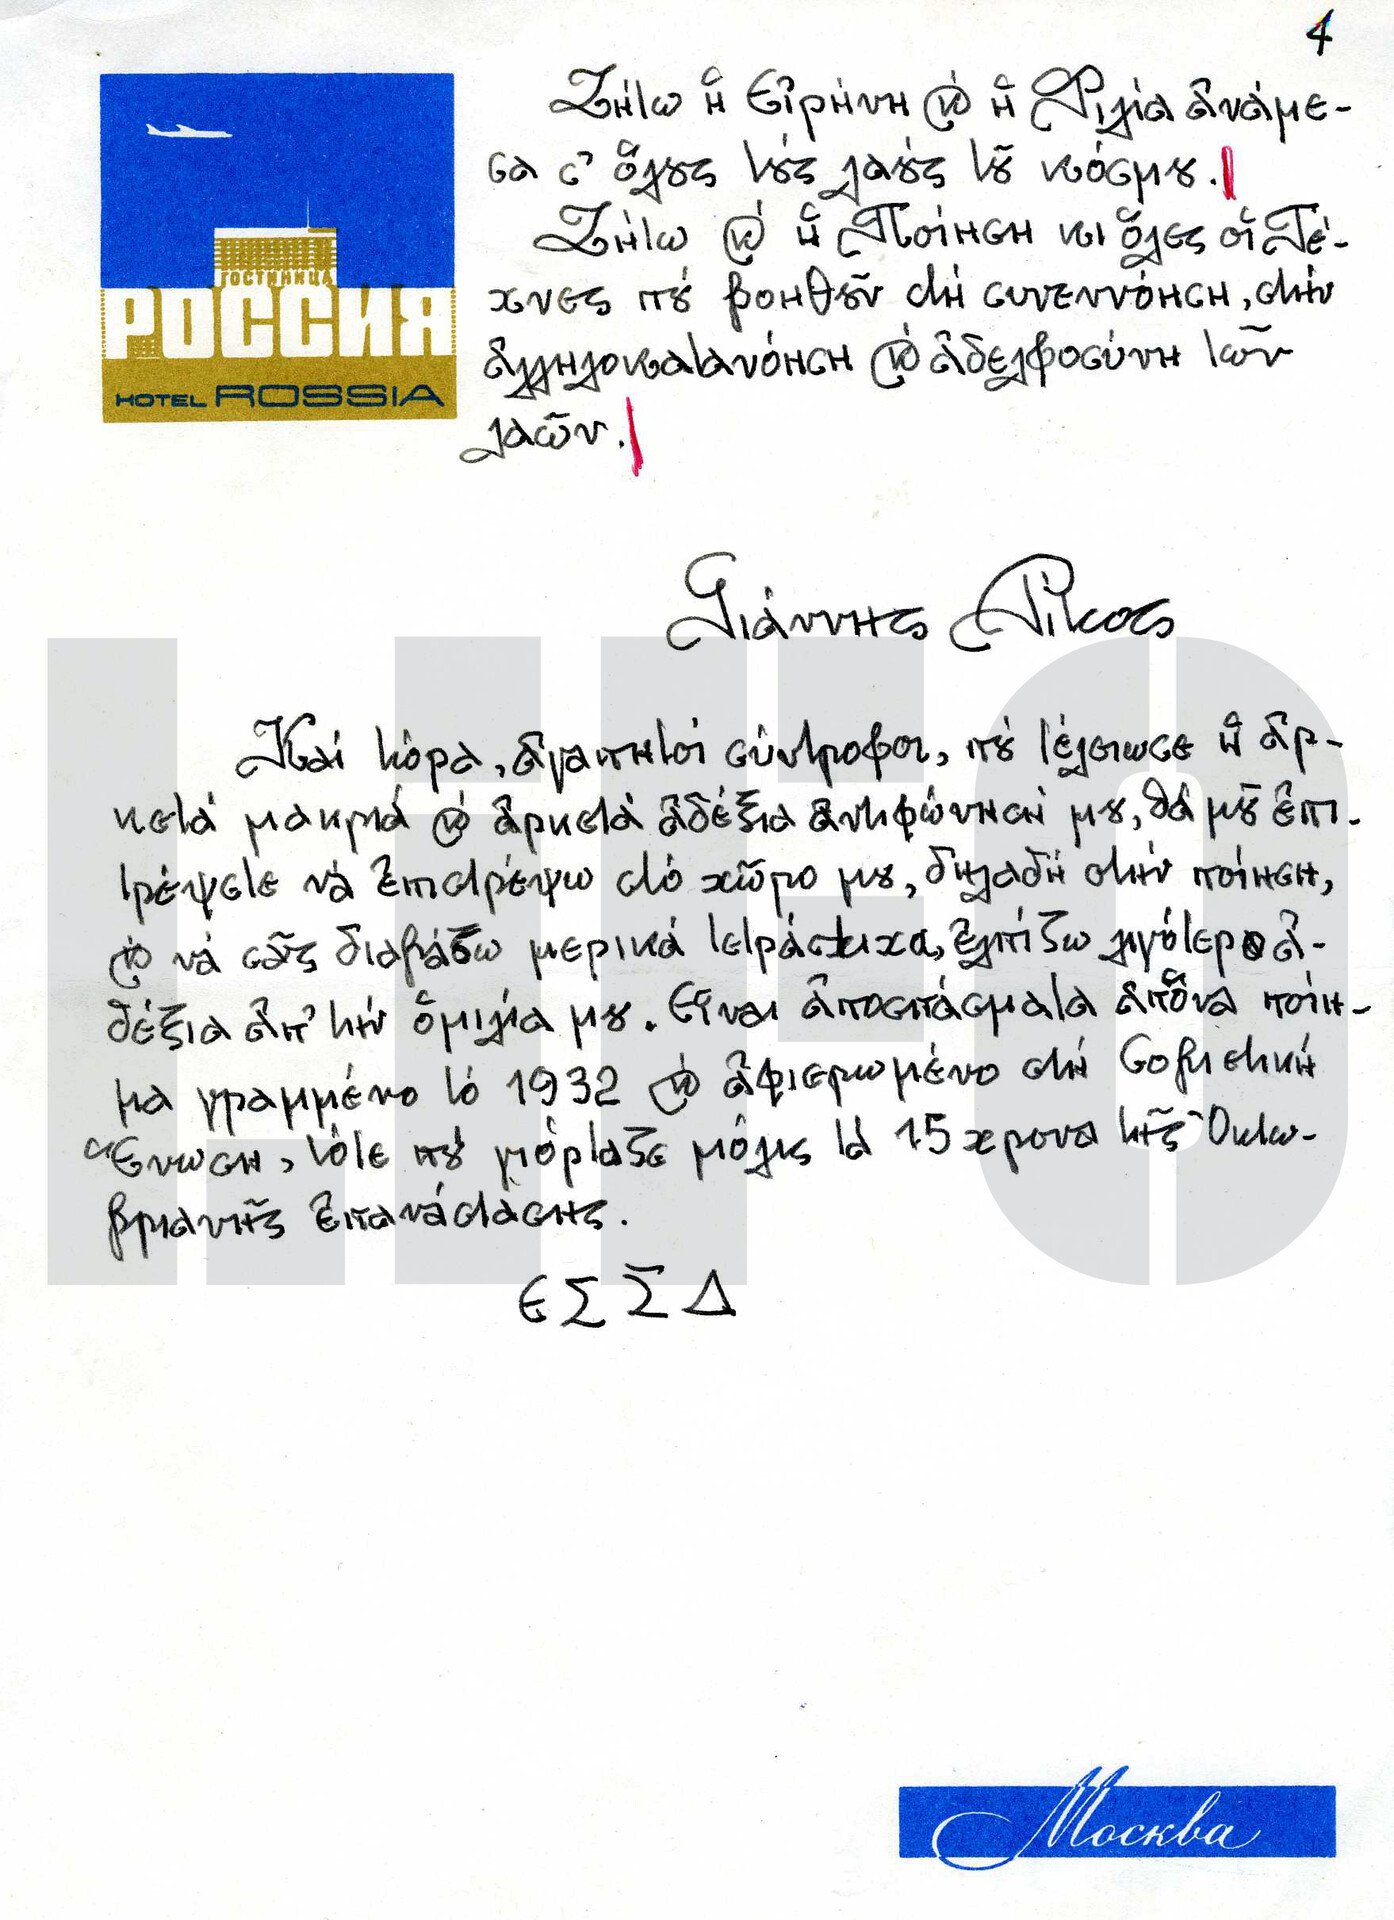 4
Ζήτω ἡ Εἰρήνη καὶ ἡ Φιλία ἀνάμε-
σα σ' ὅλους τούς λαούς τοῦ κόσμου.
Ζήτω καὶ ἡ Ποίηση κι ὅλες οἱ Τέ-
χνες πού βοηθοῦν στή συνεννόηση, στήν
ἀλληλοκατανόηση καὶ ἀδελφοσύνη τῶν
λαῶν.
ГОСТИНИЦА
РОССИЯ
HOTEL ROSSIA
Γιάννης Ρίτσος
Καί τώρα, ἀγαπητοί σύντροφοι, πού τέλειωσε ἡ ἀρ-
κετά μακριά καὶ ἀρκετά ἀδέξια ἀντιφώνησή μου, θά μοῦ ἐπι-
τρέψετε νά ἐπιστρέψω στό χῶρο μου, δηλαδή στήν ποίηση,
καὶ νά σᾶς διαβάσω μερικά τετράστιχα, ἐλπίζω λιγότερο ἀ-
δέξια ἀπ' τήν ὁμιλία μου. Εἶναι ἀποσπάσματα ἀπὄνα ποίη-
μα γραμμένο τό 1932 καὶ ἀφιερωμένο στή Σοβιετική
Ἕνωση, τότε πού γιόρταζε μόλις τά 15χρονα τῆς Ὀκτω-
βριανῆς Ἐπανάστασης.
ΕΣΣΔ
Москва